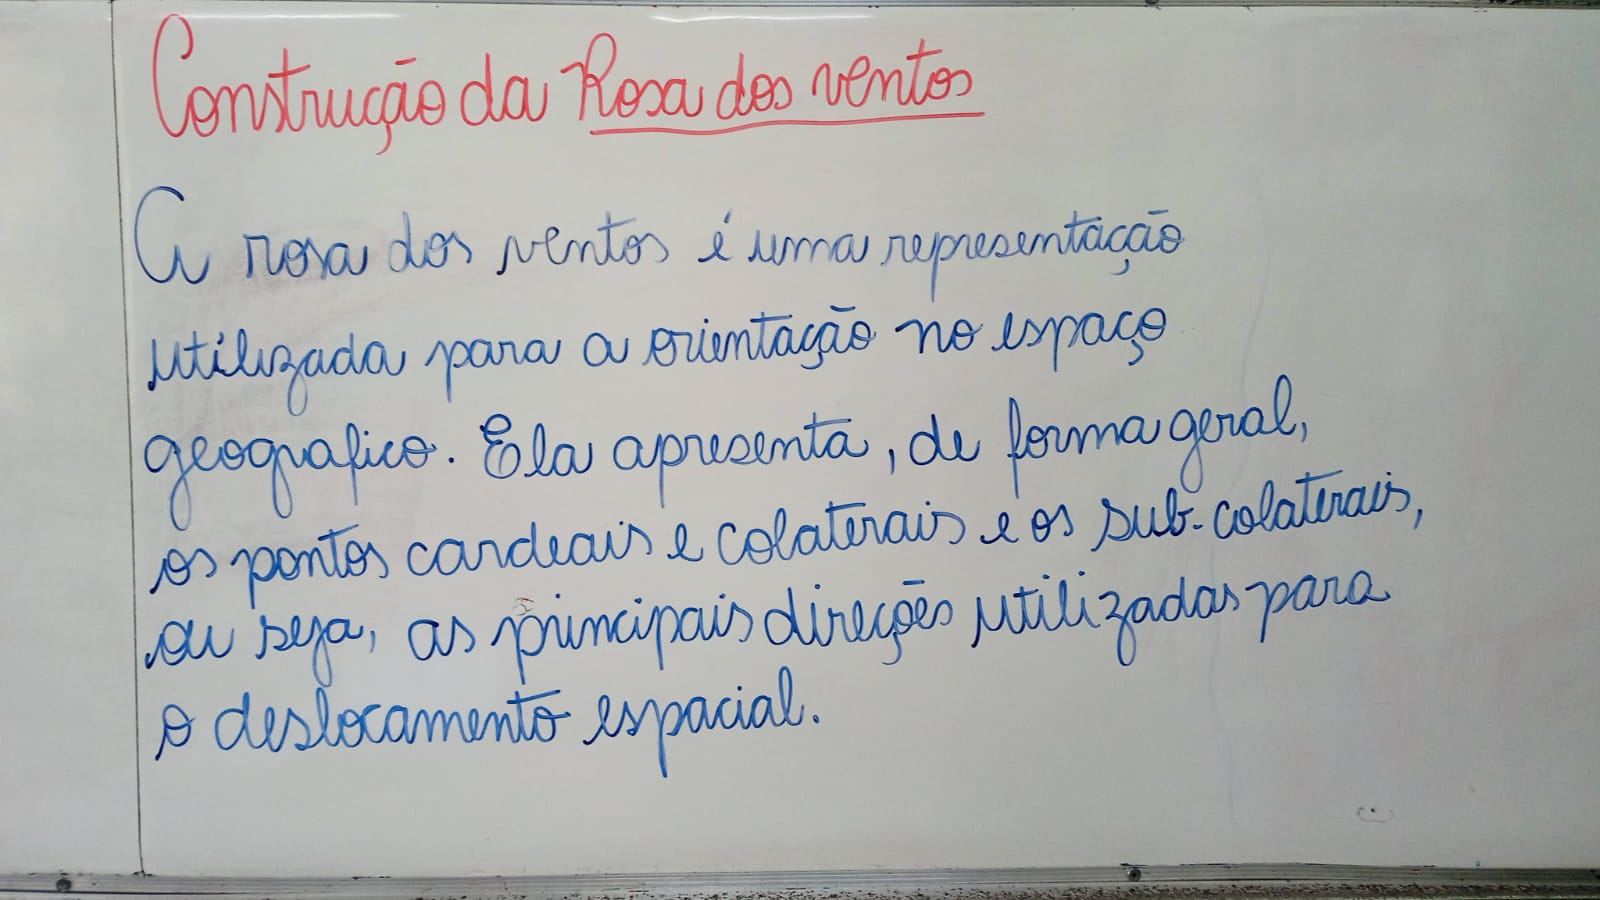 Construção da Rosa dos ventos
A rosa dos ventos é uma representação
utilizada para a orientação no espaço
geografico. Ela apresenta, de forma geral,
os pontos cardeais e colaterais e os sub-colaterais,
ou seja, as principais direções utilizadas para
o deslocamento espacial.